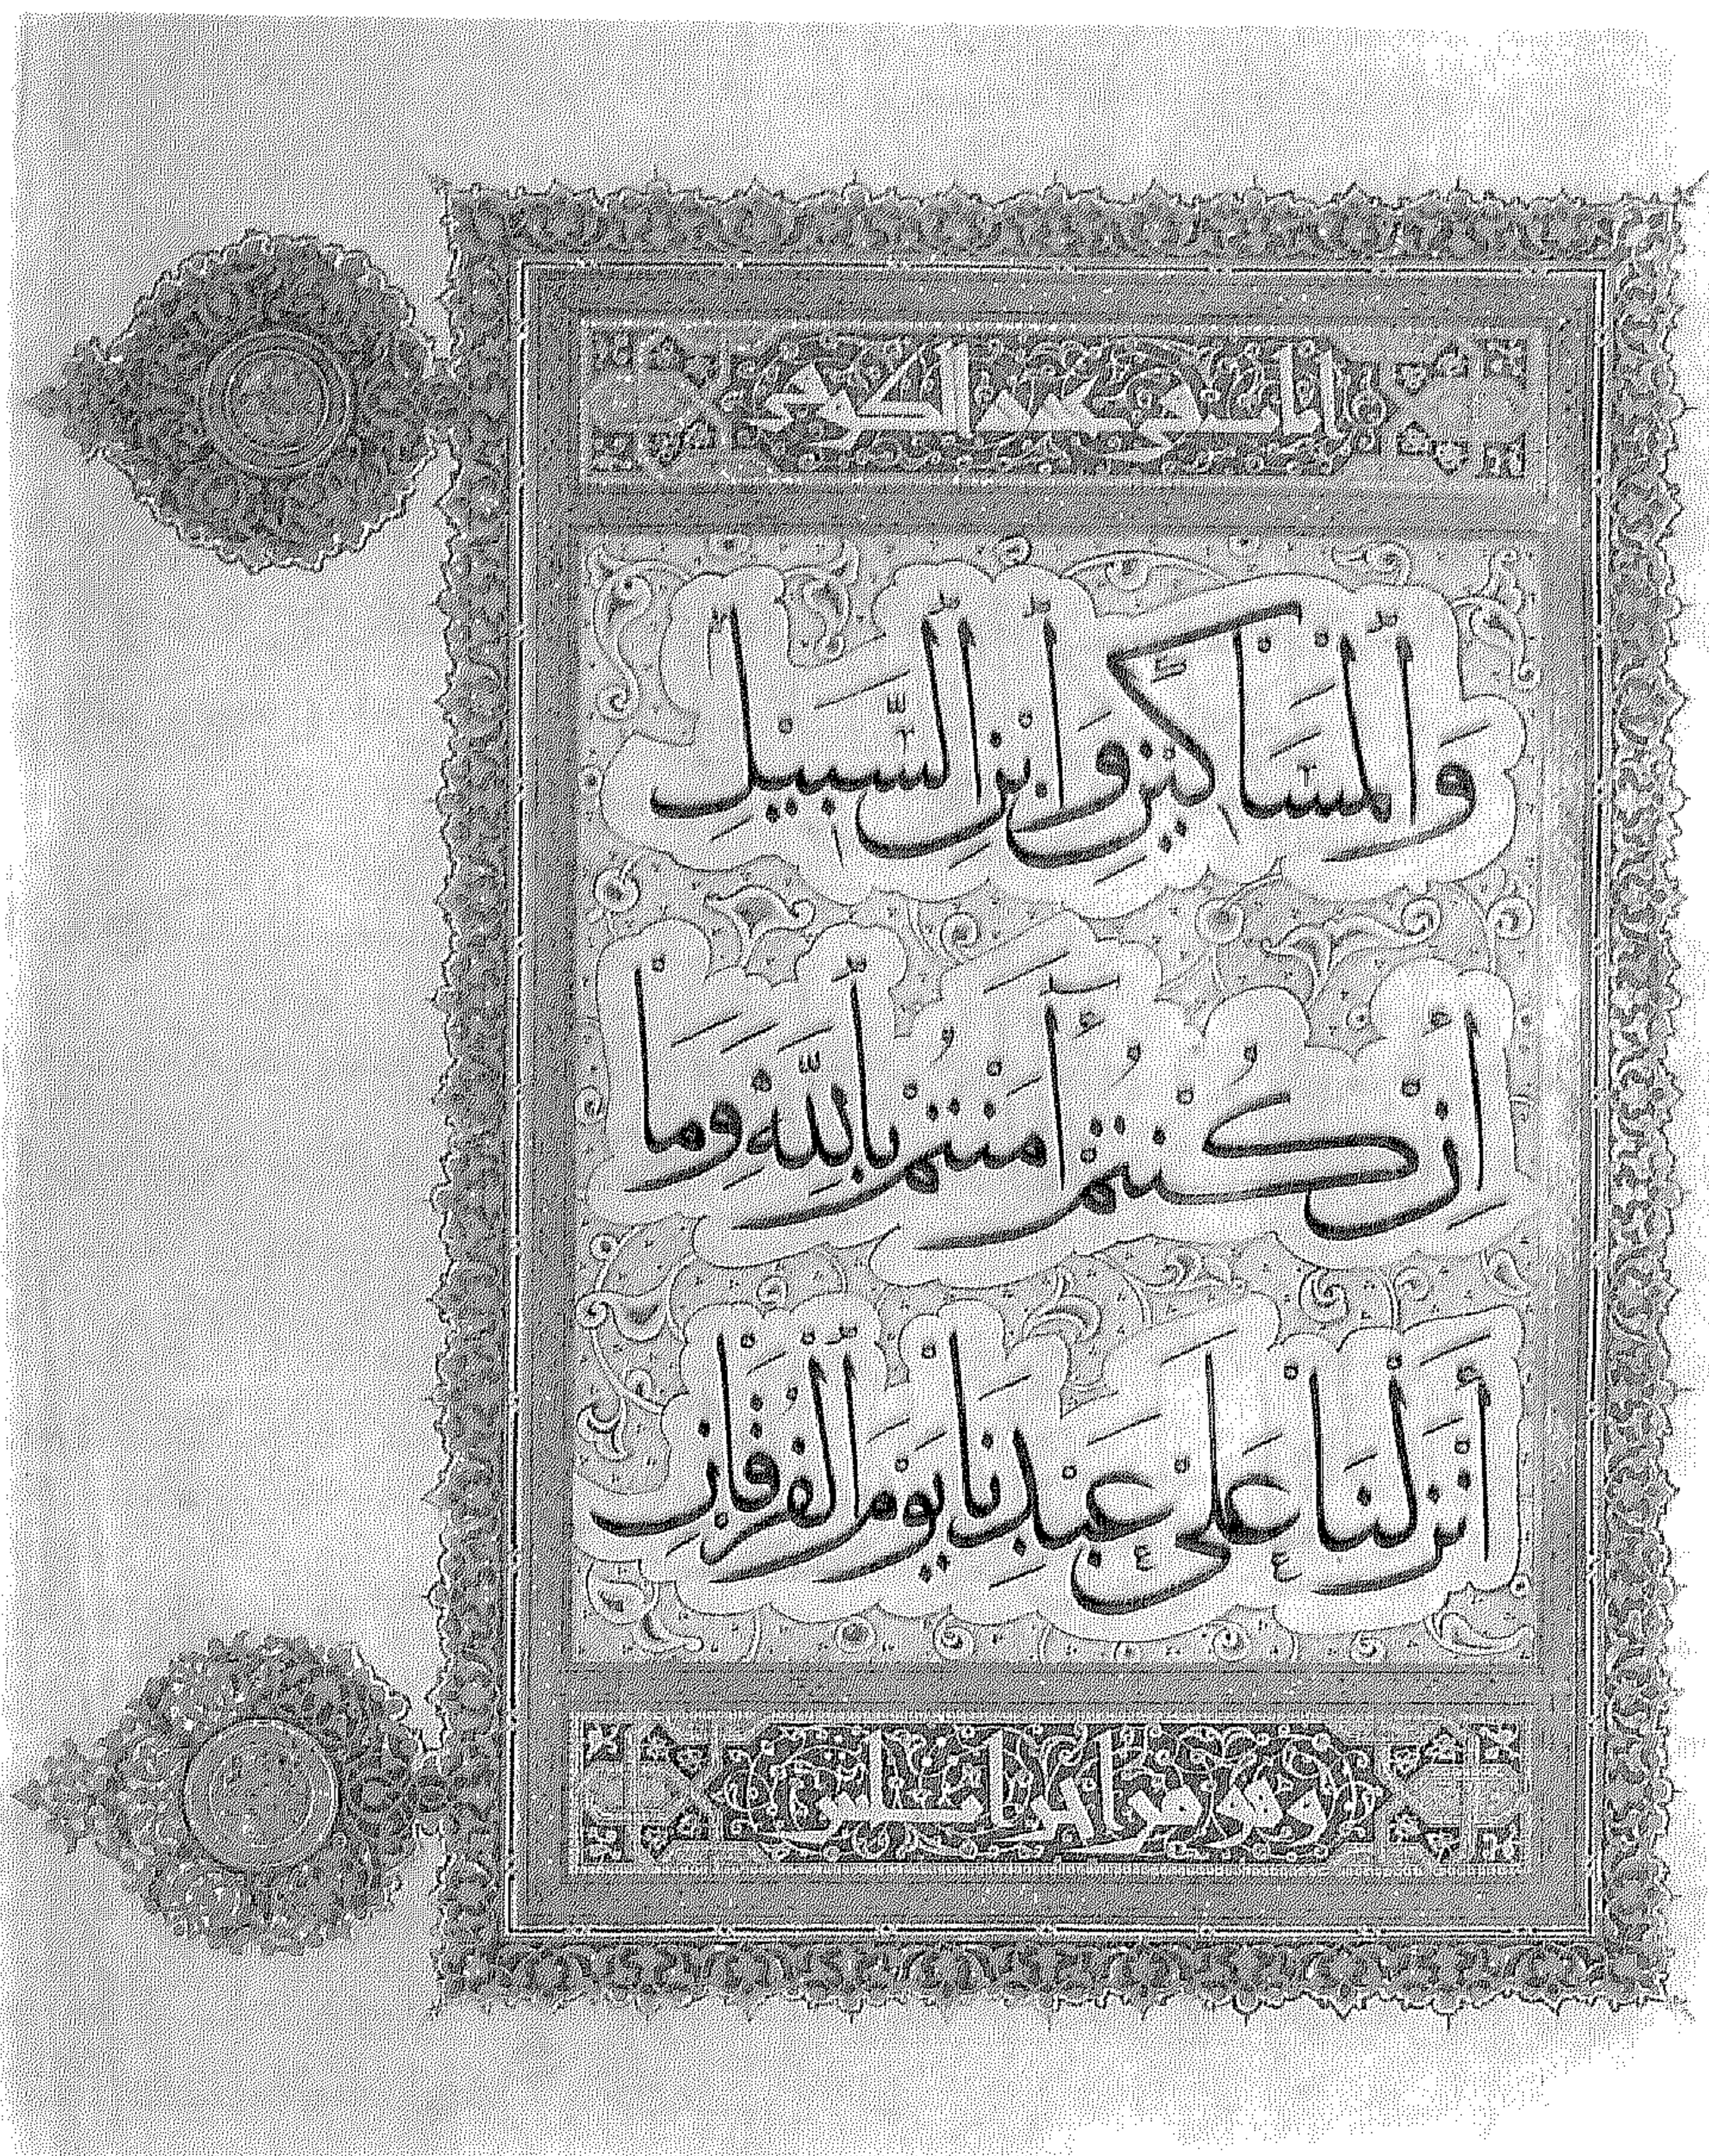 وَٱلْمَسَاكِينِ وَٱبْنِ ٱلسَّبِيلِ
إِنْ كُنْتُمْ آمَنْتُمْ بِٱللَّهِ وَمَا
أَنْزَلْنَا عَلَىٰ عَبْدِنَا يَوْمَ ٱلْفُرْقَانِ